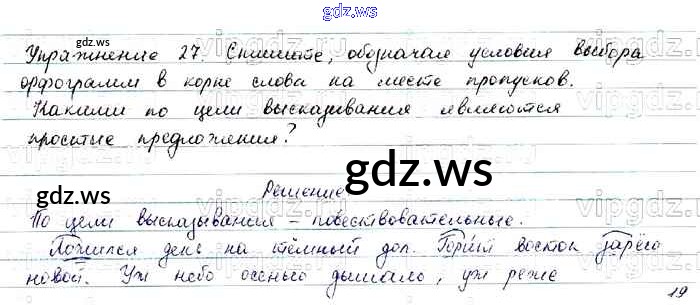 gdz.ws
Упражнение 27. Спишите, обозначая условия выбора
орфограмм в корне слова на месте пропусков.
Какими по цели высказывания являются
простые предложения?
gdz.ws
gdz.ws
Решение
По цели высказывания – повествовательные.
Ложился день на тёмный дол. Горит восток зарёю
новой. Уж небо осенью дышало, уж реже
gdz.ws
19